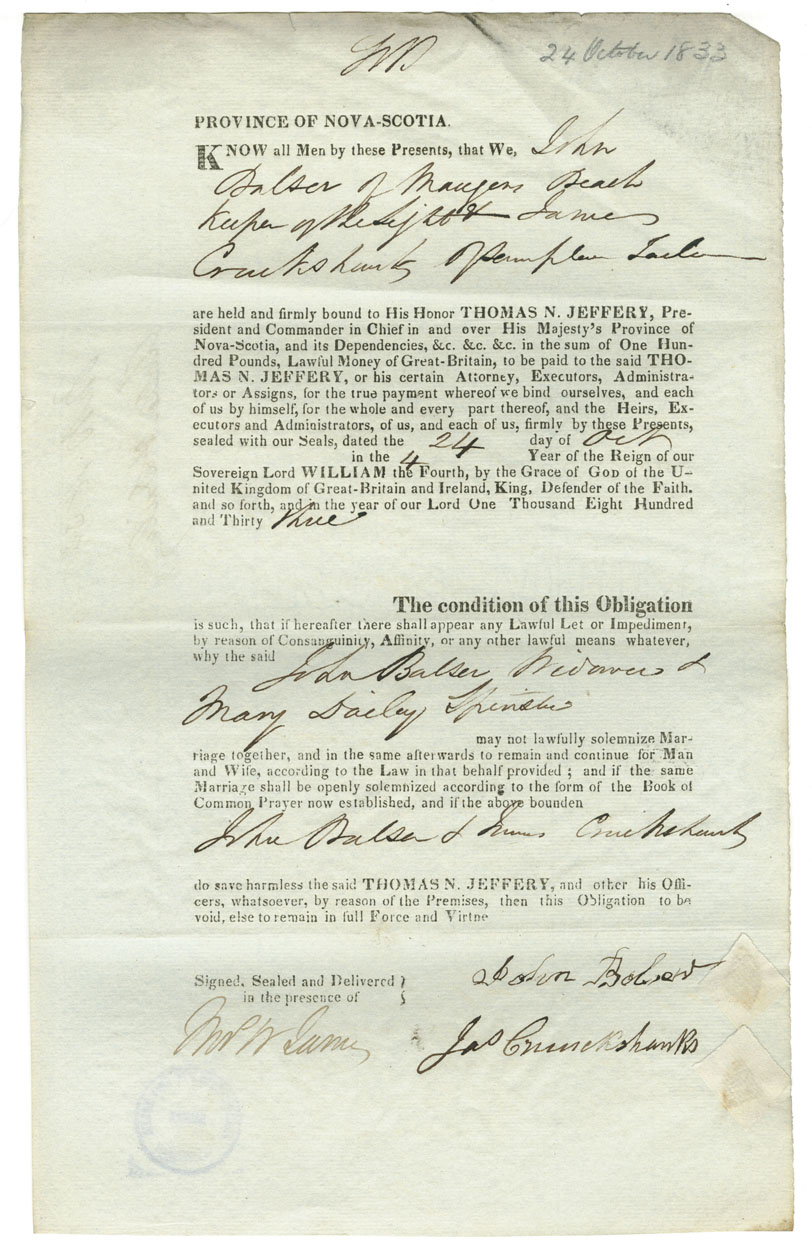 24 October 1833
PROVINCE OF NOVA-SCOTIA.
KNOW all Men by these Presents, that We, John
Balser of Maugers Beach
Keeper of the Light & James
Cruikshank of
are held and firmly bound to His Honor THOMAS N. JEFFERY, Pre-
sident and Commander in Chief in and over His Majesty's Province of
Nova-Scotia, and its Dependencies, &c. &c. &c. in the sum of One Hun-
dred Pounds, Lawful Money of Great-Britain, to be paid to the said THO-
MAS N. JEFFERY, or his certain Attorney, Executors, Administra-
tors or Assigns, for the true payment whereof we bind ourselves, and each
of us by himself, for the whole and every part thereof, and the Heirs, Ex-
ecutors and Administrators, of us, and each of us, firmly by these Presents,
sealed with our Seals, dated the 24 day of Oct
in the 4 Year of the Reign of our
Sovereign Lord WILLIAM the Fourth, by the Grace of GOD of the U-
nited Kingdom of Great-Britain and Ireland, King, Defender of the Faith.
and so forth, and in the year of our Lord One Thousand Eight Hundred
and Thirty three
The condition of this Obligation
is such, that if hereafter there shall appear any Lawful Let or Impediment,
by reason of Consanguinity, Affinity, or any other lawful means whatever,
why the said
John Balser Widower &
Mary Dailey Spinster
may not lawfully solemnize Mar-
riage together, and in the same afterwards to remain and continue for Man
and Wife, according to the Law in that behalf provided ; and if the same
Marriage shall be openly solemnized according to the form of the Book of
Common Prayer now established, and if the above bounden
John Balser & James Cruikshank
do save harmless the said THOMAS N. JEFFERY, and other his Offi-
cers, whatsoever, by reason of the Premises, then this Obligation to be
void, else to remain in full Force and Virtne
Signed, Sealed and Delivered
in the presence of
John Bolser
W James
Jas Cruickshanks